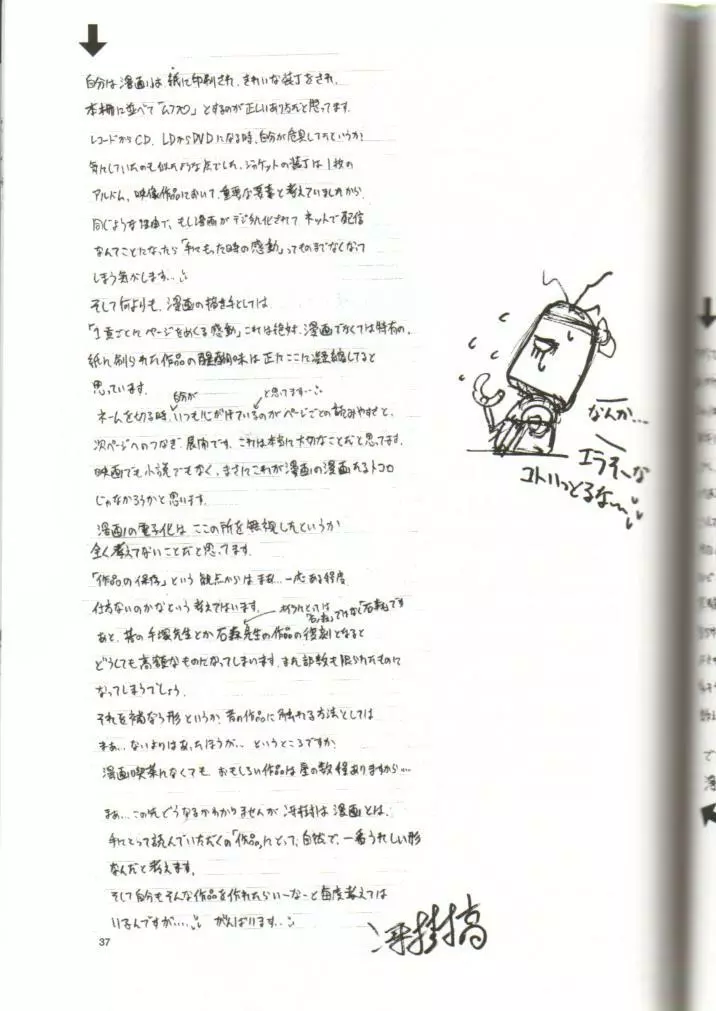 自分は漫画は紙に印刷され、きれいな装丁をされ、
本棚に並べて「ムフフ」とするのが正しいあり方だと思ってます。
レコードからCD、LDからDVDになる時、自分が危具してたというか?
気にしていたのも似たような点でした。ジャケットの装丁は1枚の
アルバム、映像作品において、重要な要素と考えていましたから、
同じような理由で、もし漫画がデジタル化されて ネットで配信
なんてことになったら「手にもった時の感動」ってものまでなくなって
しまう気がします…
そして何よりも、漫画の描き手としては
「1頁ごとにページをめくる感動」これは絶対、漫画でなくては特有の、
紙に刷られた作品の醍醐味は正にここに凝縮してると
思っています。
自分が
と思ってます…
ネームを切る時、いつも心がけているのがページごとの読みやすさと、
次ページへのつなぎ、展開です。これは本当に大切なことだと思ってます。
映画でも小説でもなく、まさにこれが漫画の漫画たるトコロ
じゃなかろうかと思います。
漫画の電子化は ここの所を無視したというか
全く考えてないことだと思ってます。
「作品の保存」という観点からは まぁ…一応ある程度
仕方ないのかなという考えではいます。
あと、昔の手塚先生とか石森先生の作品の復刻となると
どうしても高額なものになってしまいます。また部数も限られたものに
なってしまうでしょう。
それを補なう形というか?昔の作品に触れる方法としては
まぁ…ないよりはあったほうが… というところですか?
漫画喫茶になくても おもしろい作品は星の数程ありますから…
まぁ…この先どうなるかわかりませんが 冴樹は 漫画とは、
手にとって読んでいただくの「作品」にとって、自然で、一番うれしい形
なんだと考えます。
そして自分もそんな作品を作れたらいーなーと毎度考えては
いるんですが… がんばります…
なんか…
エラそーな
コトいっとるな〜
37